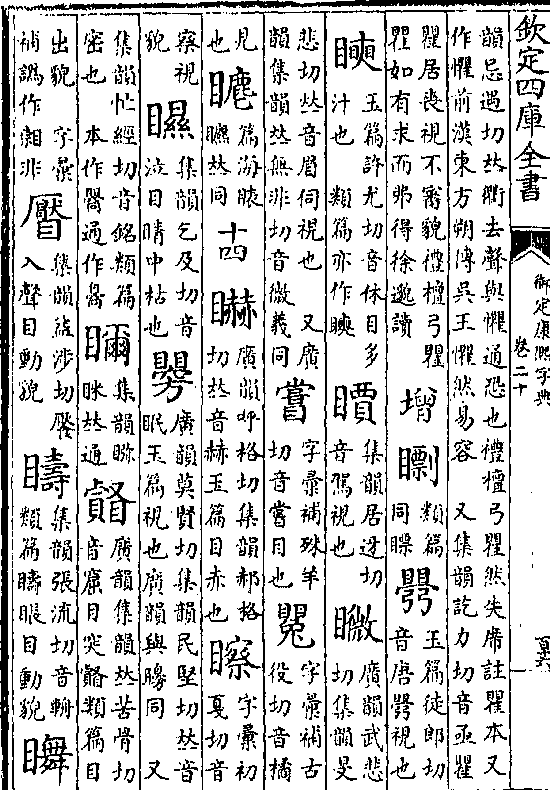 欽定四庫全書
御定康熙字典
卷二十
韻忌遇切𠀤衢去聲與懼通恐也禮檀弓瞿然失席註瞿本又
作懼前漢東方朔傳吳王懼然易容 又集韻訖力切音亟瞿
瞿居喪視不審貌禮檀弓瞿
瞿如有求而弗得徐邈讀
增
類篇
同瞟
玉篇徒郎切
音唐 視也
玉篇許尤切音休目多
汁也 類篇亦作𥌎
集韻居迓切
音駕視也
廣韻武悲
切集韻旻
悲切𠀤音眉伺視也 又廣
韻集韻𠀤無非切音微義同
字彙補殊羊
切音嘗目也
字彙補古
役切音橘
見
也
篇海
𠀤同
十四
廣韻呼格切集韻郝格
切𠀤音赫玉篇目赤也
字彙初
戛切音
察視
貌
集韻乞及切音
泣目睛中枯也
廣韻莫賢切集韻民堅切𠀤音
眠玉篇視也廣韻與矏同 又
集韻忙經切音銘類篇
密也 本作 通作
集韻
𠀤通
廣韻集韻𠀤苦骨切
音窟目突 類篇目
出貌 字彙
補譌作 非
集韻 涉切
入聲目動貌
集韻張流切音輈
類篇 眼目動貌